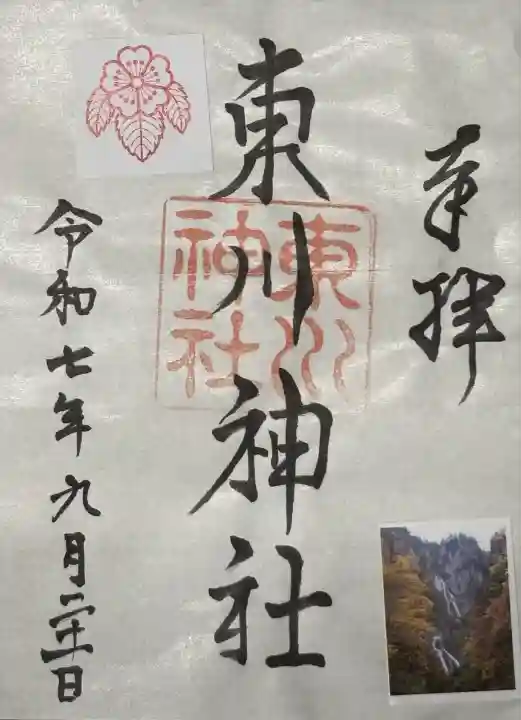 奉拝
東川神社
東川神社
令和七年九月二十一日